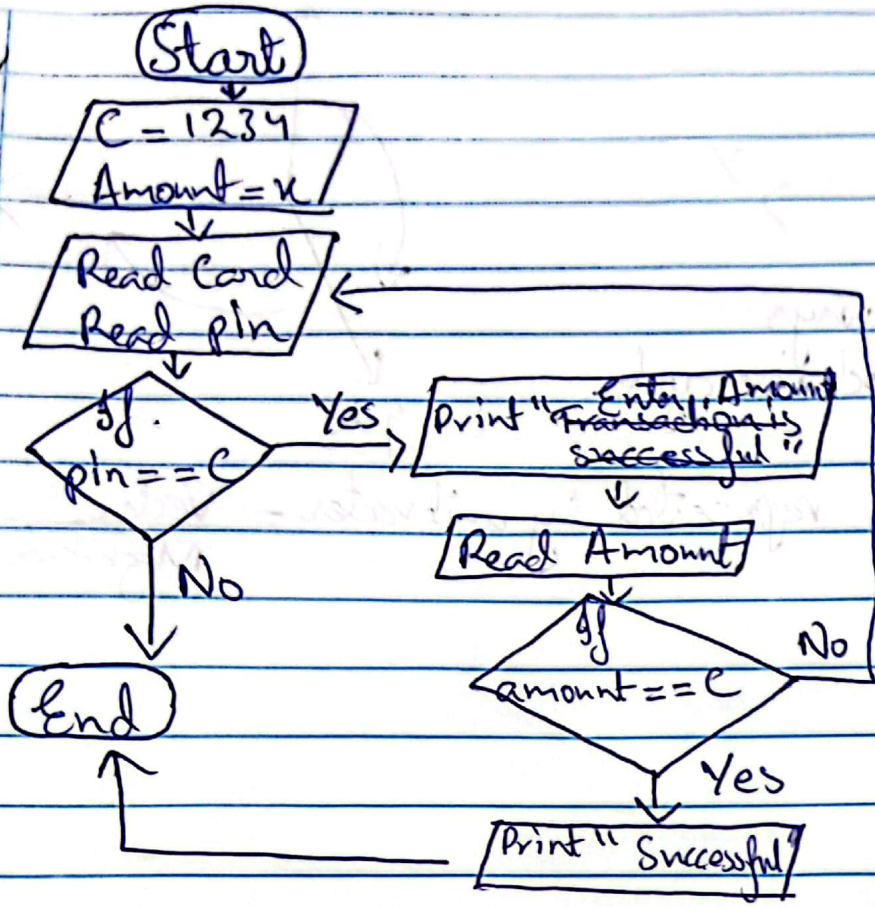 Start
C = 1234
Amount = x
Read Card
Read pin
If
pin == C
Yes
No
Print " Enter Amount
Transaction is
successful "
Read Amount
If
amount == C
No
Yes
Print " Successful "
End